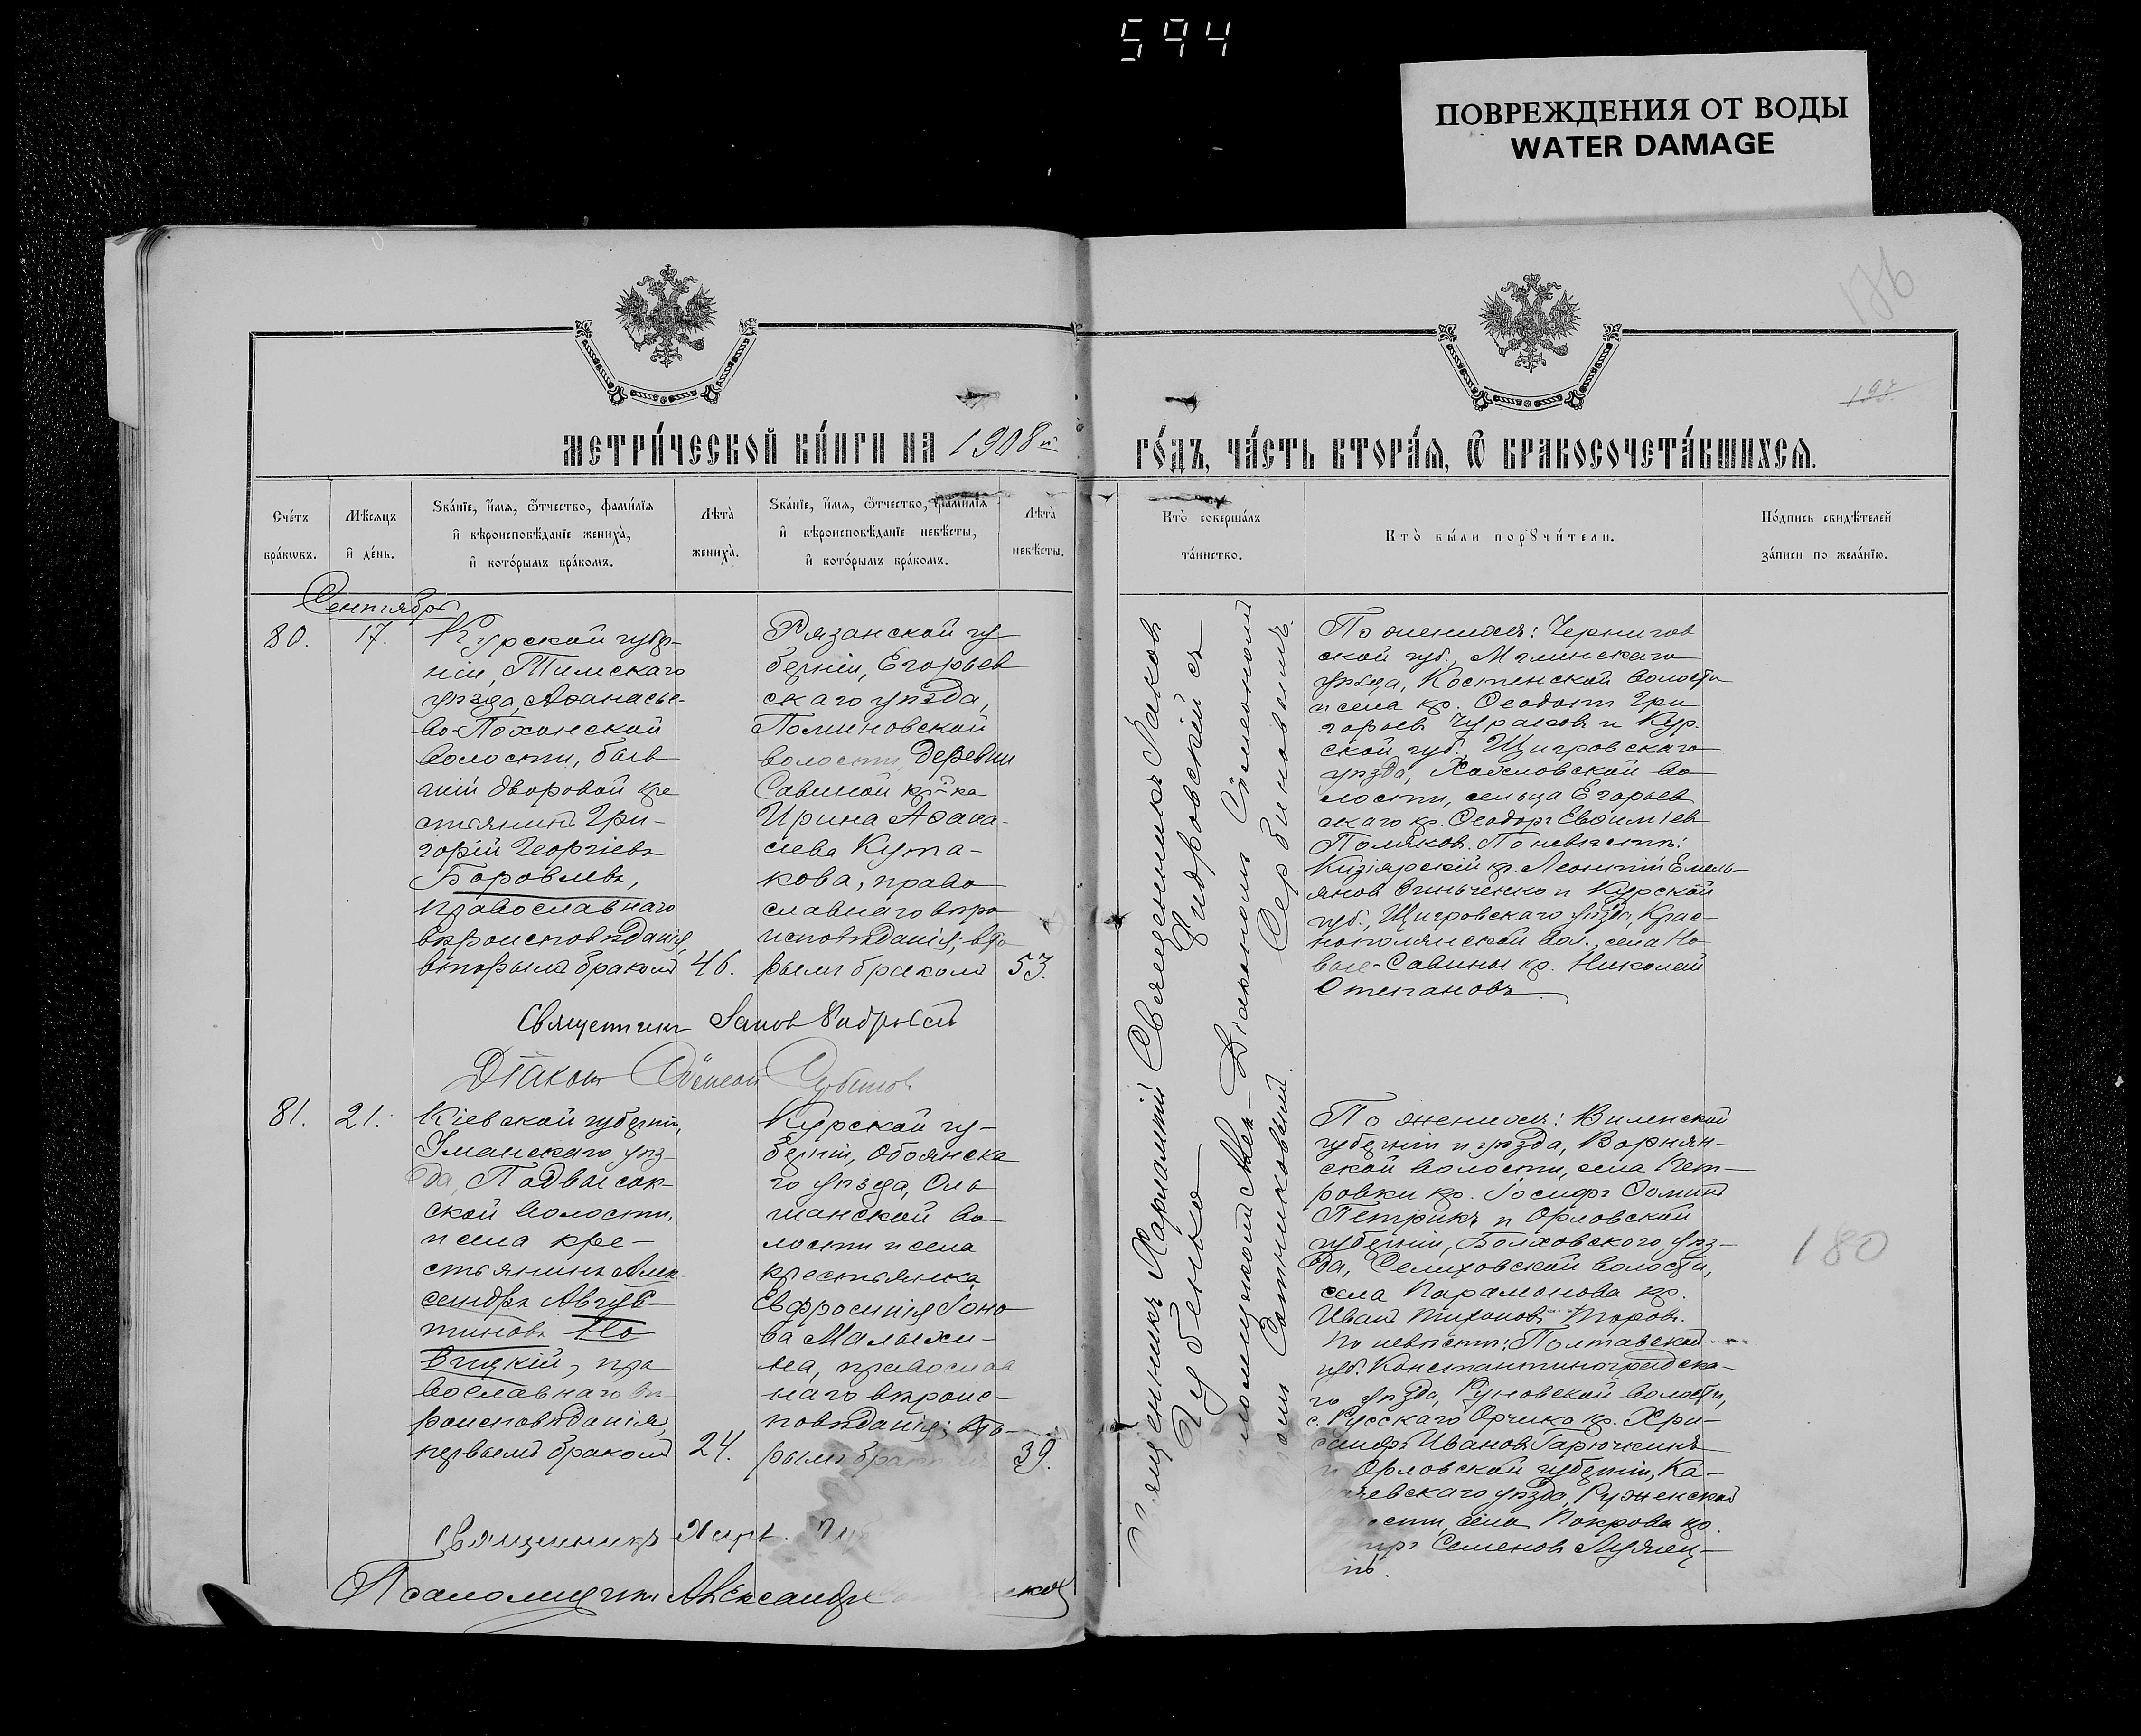 594
ПОВРЕЖДЕНИЯ ОТ ВОДЫ
WATER DAMAGE
176
193
МЕТРИ́ЧЕСКОЙ КНИ́ГИ НА 1908й
ГО́ДЪ, ЧА́СТЬ ВТОРА́Я, Ѡ БРАКОСОЧЕТА́ВШИХСЯ.
Сче́тъ
бра́кѡвъ.
Мѣ́сяцъ
и҆ де́нь.
Ѕва́нїе, и҆́мя, ѻ҆́тчество, фами́лїя
и҆ вѣроисповѣ́данїе жениха̀,
и҆ кото́рымъ бра́комъ.
Лѣта̀
жениха̀.
Ѕва́нїе, и҆́мя, ѻ҆́тчество, фами́лїя
и҆ вѣроисповѣ́данїе невѣ́сты,
и҆ кото́рымъ бра́комъ.
Лѣта̀
невѣ́сты.
Кто̀ соверша́лъ
та́инство.
Кто̀ бы́ли порꙋчи́тели.
По́дпись свидѣ́телей
за́писи по жела́нїю.
Сентябрь
80.
17.
Курской губер-
ніи, Тимскаго
уѣзда, Аѳанасье-
во-Похонской
волости, быв
шій дворовой кре
стьянинъ Гри-
горій Георгіевъ
Боровлевъ,
православнаго
вѣроисповѣданія,
вторымъ бракомъ
46.
Рязанской гу
берніи, Егорьев
скаго уѣзда,
Поминовской
волости, деревни
Савиной кр-ка
Ирина Аѳана-
сіева Кута-
кова, право
славнаго вѣро
исповѣданія; вто
рымъ бракомъ
53.
Священникъ
Діаконъ Симеон
Священникъ Харлампій
Цубенко
Священникъ
Фидровскій съ
Діакономъ Симеономъ
Сербиновымъ.
Сотниковичемъ.
По женихѣ: Чернигов
ской губ., Мглинскаго
уѣзда, Костенской волости
и села кр. Ѳеодотъ Гри
горьев Чураков и Кур.
ской губ. Щигровскаго
уѣзда, Хохловской во
лости, сельца Егорьев
скаго кр. Ѳеодоръ Евѳиміев
Поляков. По невѣстѣ:
Кизіярскій кр. Леонтій Емель-
янов Синьченко и Курской
губ., Щигровскаго уѣзда, Крас-
нополянской вол., села Но
вые-Савины кр. Николай
Степановъ
81.
21.
Кіевской губерніи,
Уманскаго уѣз-
да, Подвысоц-
ской волости,
и села кре-
стьянинъ Алек-
сандръ Авгус
тиновъ Но
вицкій, пра
вославнаго вѣ
роисповѣданія,
первымъ бракомъ
24.
Курской гу-
берніи, Обоянска
го уѣзда, Оль
шанской во
лости и села
крестьянка
Евфросинія Іоно
ва Малыхи-
на, православ
наго вѣроис-
повѣданія; вто-
рымъ
39.
По женихѣ: Виленской
губерніи и уѣзда, Ворнян-
ской волости, села Пет-
ровки кр. Іосифъ Ѳоминъ
Петрикъ и Орловской
губерніи, Болховскаго уѣз-
да, Селиховской волости,
села Парамонова кр.
Иванъ Тихоновъ Торовъ.
По невѣстѣ: Полтавской
губ. Константиноградска-
го уѣзда, Руновской волости,
с. Русскаго Орчика кр. Хри-
санфъ Иванов Гарючкинъ
и Орловской губерніи, Ка-
рачевскаго уѣзда, Руженской
волости, села Покрова кр.
Семенов
180
Священникъ Харл.
Псаломщикъ Александръ